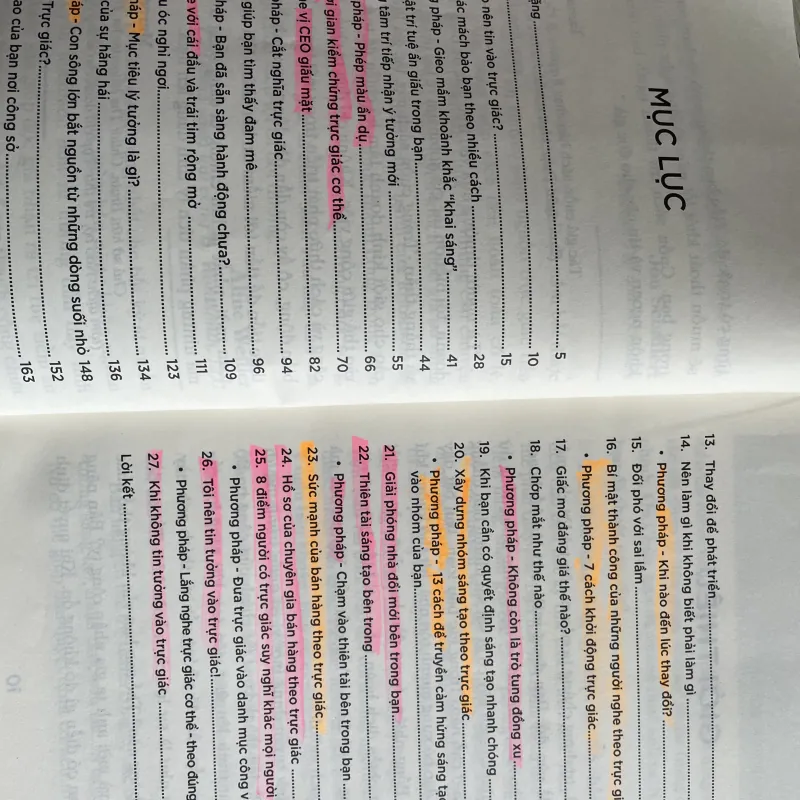 MỤC LỤC
ặng 5
o nên tin vào trực giác? 10
15
ác mách bảo bạn theo nhiều cách 28
pháp - Gieo mầm khoảnh khắc "khai sáng" 41
ật trí tuệ ẩn giấu trong bạn 44
tâm trí tiếp nhận ý tưởng mới 55
pháp - Phép màu ẩn dụ 66
i gian kiểm chứng trực giác cơ thể 70
e vị CEO giấu mặt 82
pháp - Cắt nghĩa trực giác 94
giúp bạn tìm thấy đam mê 96
háp - Bạn đã sẵn sàng hành động chưa? 109
với cái đầu và trái tim rộng mở 111
u óc nghỉ ngơi 123
háp - Mục tiêu lý tưởng là gì? 134
của sự hăng hái 136
áp - Con sông lớn bắt nguồn từ những dòng suối nhỏ 148
Trực giác? 152
ao của bạn nơi công sở 163
13. Thay đổi để phát triển
14. Nên làm gì khi không biết phải làm gì
• Phương pháp - Khi nào đến lúc thay đổi?
15. Đối phó với sai lầm
16. Bí mật thành công của những người nghe theo trực gi
• Phương pháp - 7 cách khởi động trực giác
17. Giấc mơ đáng giá thế nào?
18. Chớp mắt như thế nào
• Phương pháp - Không còn là trò tung đồng xu
19. Khi bạn cần có quyết định sáng tạo nhanh chóng
20. Xây dựng nhóm sáng tạo theo trực giác
• Phương pháp - 13 cách để truyền cảm hứng sáng tạo
vào nhóm của bạn
21. Giải phóng nhà đổi mới bên trong bạn
22. Thiên tài sáng tạo bên trong
• Phương pháp - Chạm vào thiên tài bên trong bạn
23. Sức mạnh của bán hàng theo trực giác
24. Hồ sơ của chuyên gia bán hàng theo trực giác
25. 8 điểm người có trực giác suy nghĩ khác mọi người
• Phương pháp - Đưa trực giác vào danh mục công v
26. Tôi nên tin tưởng vào trực giác!
• Phương pháp - Lắng nghe trực giác cơ thể - theo đúng
27. Khi không tin tưởng vào trực giác
Lời kết